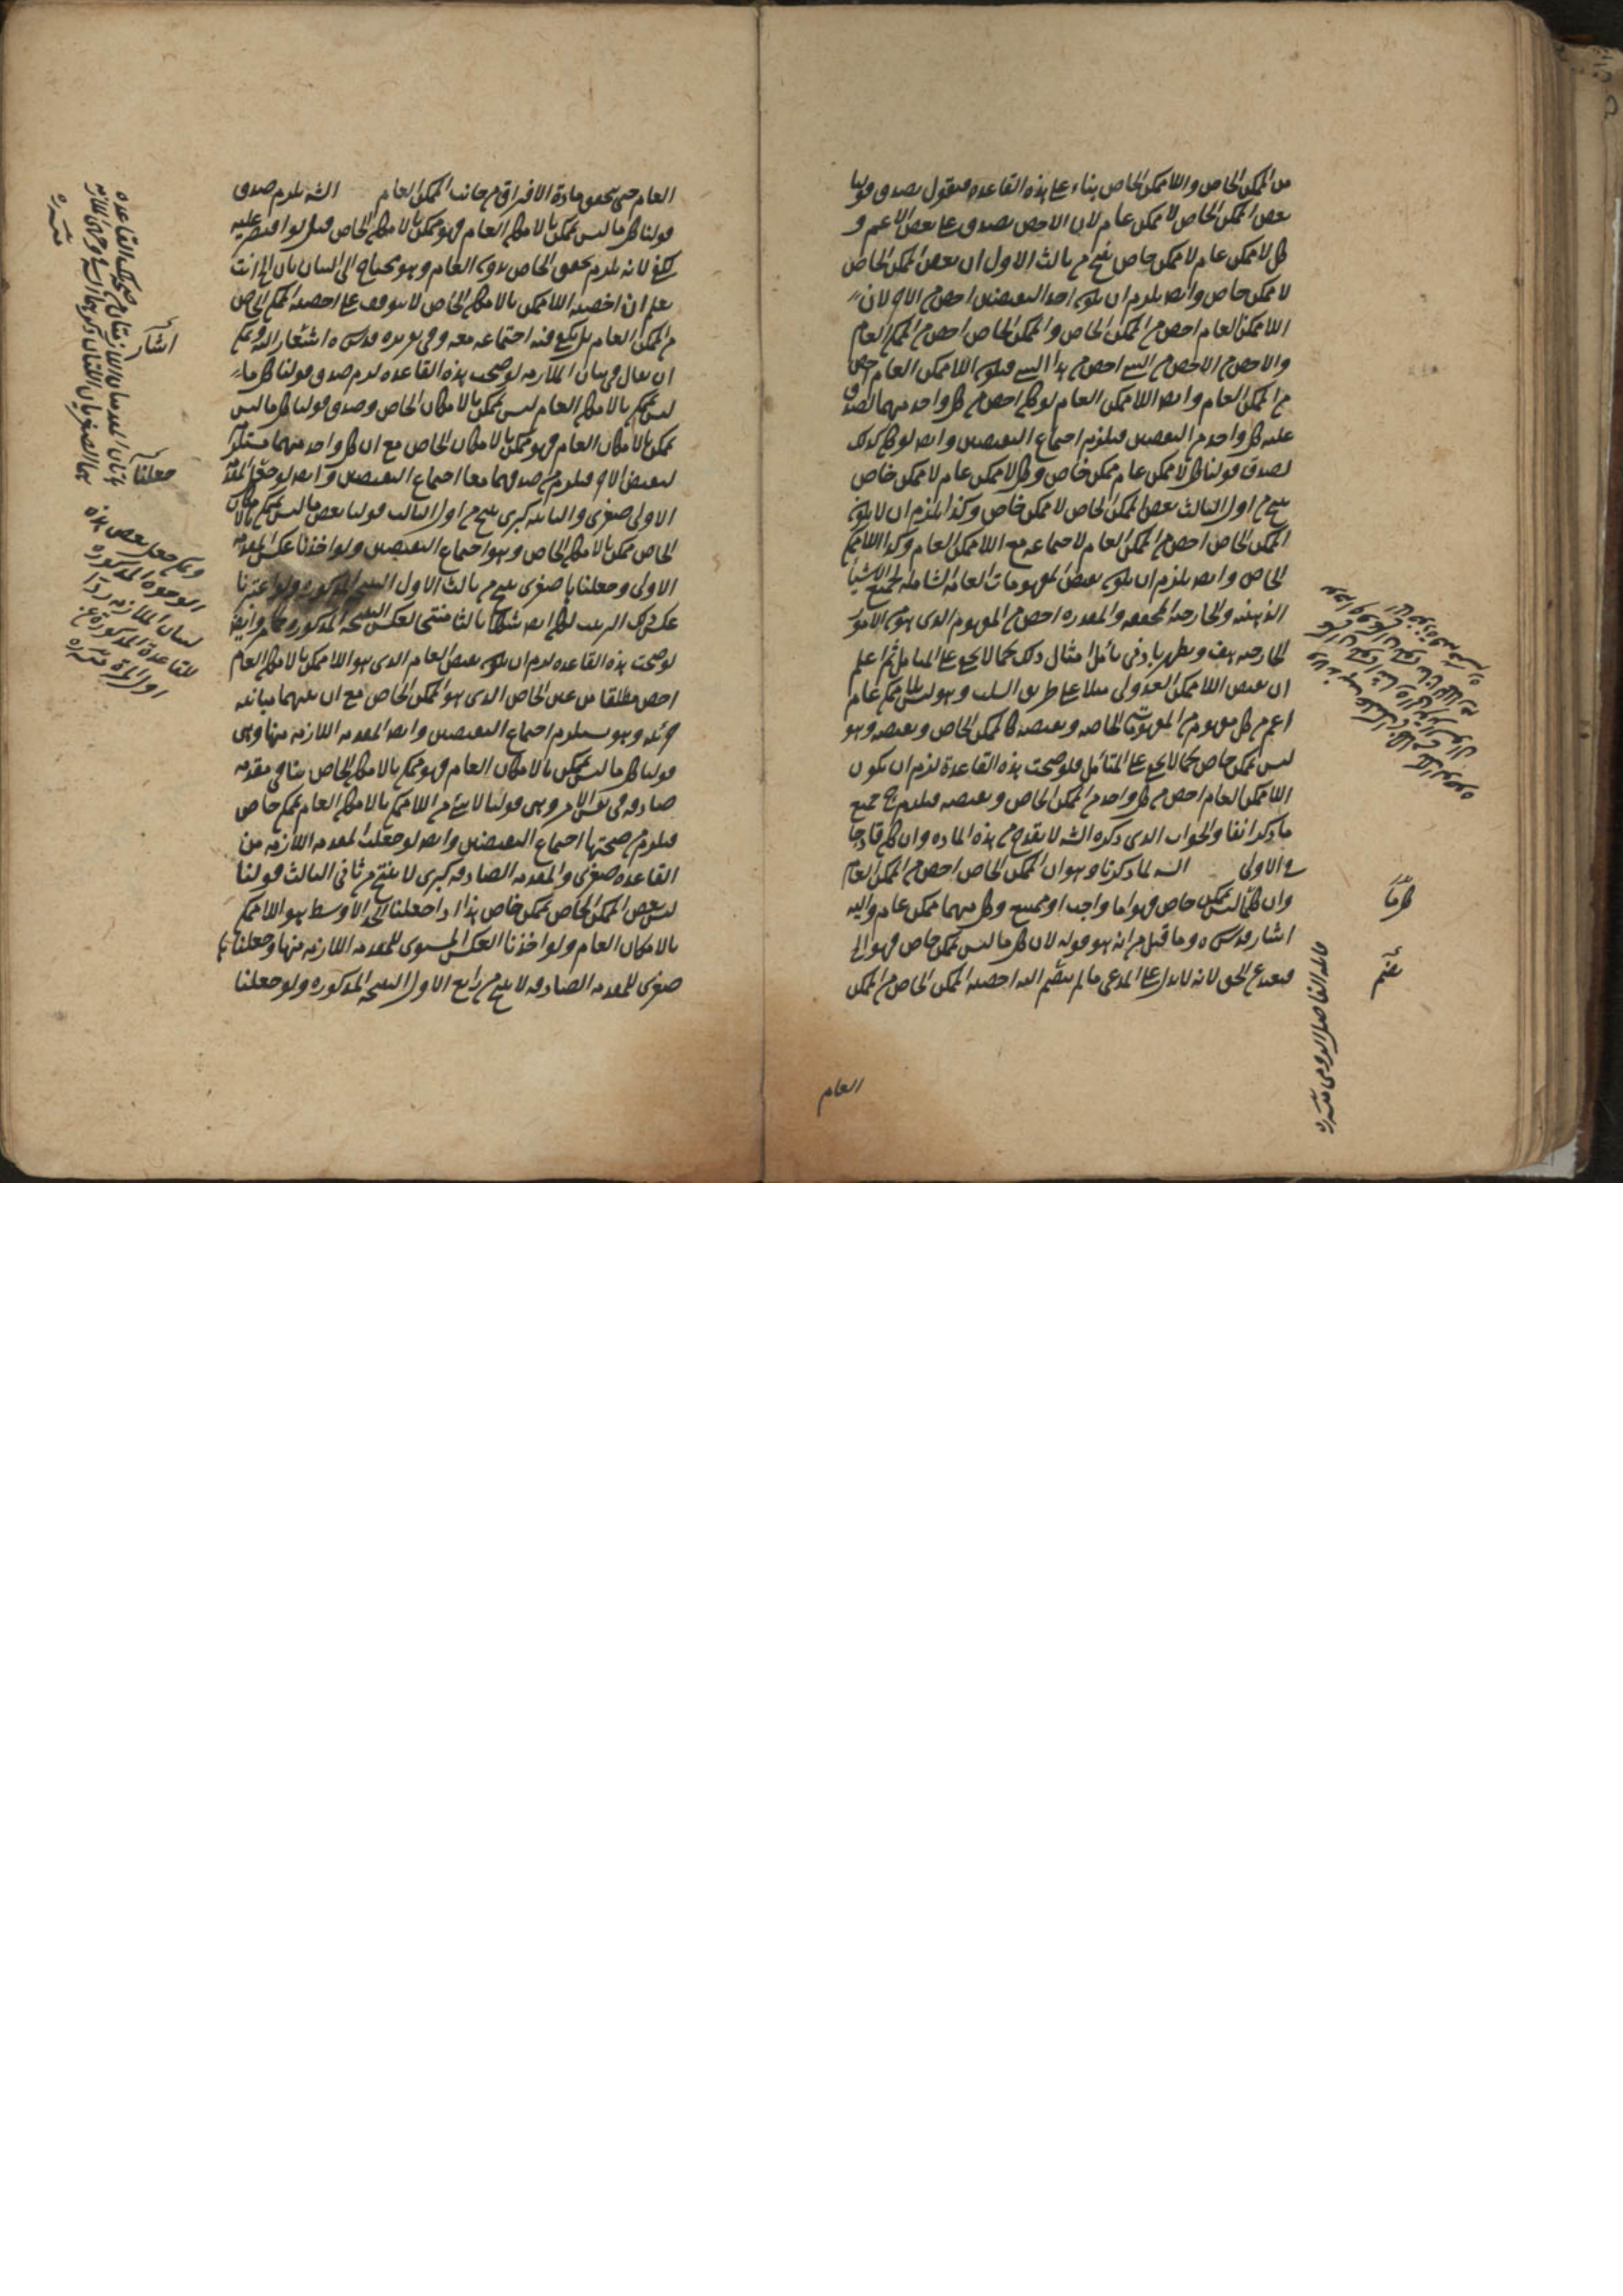 من الممكن الخاص واللاممكن الخاص بناء على هذه القاعدة فنقول يصدق قولنا
بعض الممكن الخاص لا ممكن عام لان الاخص يصدق على بعض الاعم و
كل لا ممكن عام لا ممكن خاص ينتج من ثالث الاول ان بعض الممكن الخاص
لا ممكن خاص وايض يلزم ان يكون احد النقيضين اخص من الاخر لان
اللاممكن العام اخص من الممكن الخاص والممكن الخاص اخص من الممكن العام
والاخص من الاخص من الشيء اخص من هذا الشيء فيكون اللاممكن العام اخص
من الممكن العام وايض اللاممكن العام لو كان اخص من كل واحد منهما لصدق
عليه كل واحد من النقيضين فيلزم اجتماع النقيضين وايض لو كان كذلك
لصدق قولنا كل لا ممكن عام ممكن خاص وكل لا ممكن عام لا ممكن خاص
ينتج من اول الثالث بعض الممكن الخاص لا ممكن خاص وكذا يلزم ان لا يكون
الممكن الخاص اخص من الممكن العام لاجتماعه مع اللاممكن العام وكذا اللاممكن
الخاص وايض يلزم ان يكون نقيض المفهومات العامة الشاملة لجميع الاشياء
الذهنية والخارجية المحققة والمقدرة اخص من المفهوم الذي هو من الامور
الخارجية هف ويظهر بادنى تأمل امثال ذلك كما لا يخفى على المتأمل ثم اعلم
ان نقيض اللاممكن العدولي مثلا على طريق السلب وهو ليس بلا ممكن عام
اعم من كل مفهوم من المفهومات الخاصة ونقيضه كالممكن الخاص ونقيضه وهو
ليس بممكن خاص كما لا يخفى على المتأمل فلو صحت هذه القاعدة لزم ان يكون
اللاممكن العام اخص من كل واحد من الممكن الخاص ونقيضه فيلزم ح جميع
ما ذكر انفا والجواب الذي ذكره الش لا يقدح في هذه المادة وان كان قادحا
في الاولى لما ذكرنا وهو ان الممكن الخاص اخص من الممكن العام
وان كل ما ليس بممكن خاص فهو اما واجب او ممتنع وكل منهما ممكن عام واليه
اشار قدس سره وما قيل من انه هو قوله لان كل ما ليس بممكن خاص فهو الى
فبعيد عن الحق لانه لا يدل على المدعى ما لم ينضم اليه اخصية الممكن الخاص من الممكن
العام
كل ما
ينضم
قائله الفاضل الرومي منه
العام حتى يتحقق مادة الافتراق من جانب الممكن العام الش يلزم صدق
قولنا كل ما ليس بممكن بالامكان العام فهو ممكن بالامكان الخاص قيل لو اقتصر عليه
لكفى لانه يلزم تحقق الخاص بدون العام وهو محتاج الى البيان بان الى انت
تعلم ان اخصية اللاممكن بالامكان الخاص لا يتوقف على اخصية الممكن الخاص
من الممكن العام بل يكفي فيه اجتماعه معه وفي تقريره قدس سره اشعار اليه ويمكن
ان يقال في بيان الملازمة لو صحت هذه القاعدة لزم صدق قولنا كل ما
ليس بممكن بالامكان العام ليس بممكن بالامكان الخاص وصدق قولنا كل ما ليس
بممكن بالامكان العام فهو ممكن بالامكان الخاص مع ان كل واحد منهما مستلزم
لنقيض الاخر فيلزم من صدقهما معا اجتماع النقيضين وايض لو جعل المقدمة
الاولى صغرى والثانية كبرى ينتج من اول الثالث قولنا بعض ما ليس بممكن بالامكان
الخاص ممكن بالامكان الخاص وهو اجتماع النقيضين ولو اخذنا عكس المقدمة
الاولى وجعلناها صغرى ينتج من ثالث الاول النتيجة المذكورة ولو اعتبرنا
عكس ذلك الترتيب لكان ايض شكلا ثالثا منتجا لعكس النتيجة المذكورة وايض
لو صحت هذه القاعدة لزم ان يكون نقيض العام الذي هو اللاممكن بالامكان العام
اخص مطلقا من عين الخاص الذي هو الممكن الخاص مع ان بينهما مباينة
جزئية وهو يستلزم اجتماع النقيضين وايض المقدمة اللازمة منها وهي
قولنا كل ما ليس بممكن بالامكان العام فهو ممكن بالامكان الخاص ينافي مقدمة
صادقة في نفس الامر وهي قولنا لا شيء من اللاممكن بالامكان العام بممكن خاص
فيلزم من صحتها اجتماع النقيضين وايض لو جعلت المقدمة اللازمة من
القاعدة صغرى والمقدمة الصادقة كبرى لا ينتج من ثاني الثالث قولنا
ليس بعض الممكن الخاص بممكن خاص هذا اذا جعلنا الحد الاوسط هو اللاممكن
بالامكان العام ولو اخذنا العكس المستوى للمقدمة اللازمة منها وجعلناها
صغرى للمقدمة الصادقة لا ينتج من رابع الاول النتيجة المذكورة ولو جعلنا
اشار
جعلنا
ويمكن جعل بعض هذه
الوجوه المذكورة
لبيان الملازمة ردا
للقاعدة المذكورة عن
اول المادة منه